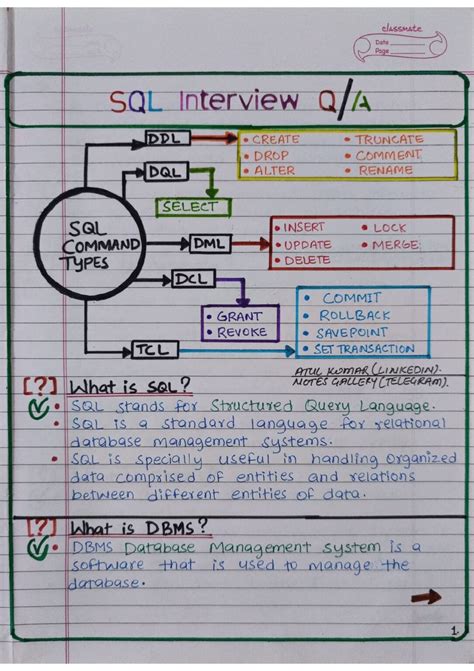 classmate
Date
Page
SQL Interview Q/A
SQL COMMAND TYPES
DDL
• CREATE • TRUNCATE
• DROP • COMMENT
• ALTER • RENAME
DQL
SELECT
DML
• INSERT • LOCK
• UPDATE • MERGE
• DELETE
DCL
• GRANT
• REVOKE
TCL
• COMMIT
• ROLLBACK
• SAVEPOINT
• SET TRANSACTION
ATUL KUMAR (LINKEDIN).
NOTES GALLERY (TELEGRAM).
[?] What is SQL?
• SQL stands for Structured Query Language.
• SQL is a standard language for relational
database management systems.
• SQL is specially useful in handling Organized
data comprised of entities and relations
between different entities of data.
[?] What is DBMS?
• DBMS Database Management system is a
software that is used to manage the
database.
1